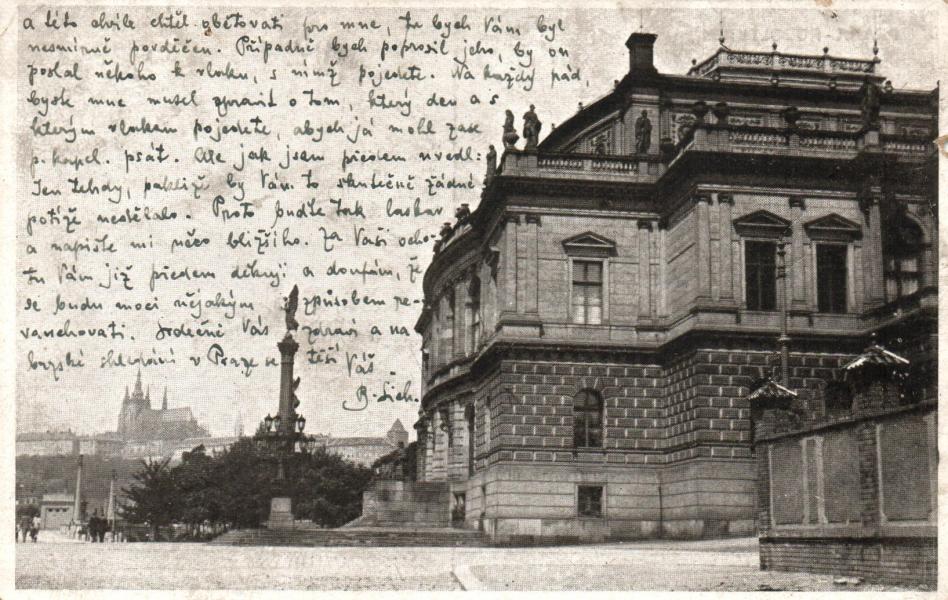 a této chvíle chtěl obětovati pro mne, tu bych Vám byl
nesmírně povděčen. Případně bych poprosil jeho, by on
poslal někoho k vlaku, s nímž pojedete. Na každý pád,
byste mne musel zpravit o tom, který den a s
kterým vlakem pojedete, abych já mohl zase
p. kapel. psát. Ale jak jsem předem uvedl:
Jen tehdy, pakliže by Vám to skutečně žádné
potíže nedělalo. Proto buďte tak laskav
a napište mi něco bližšího. Za Vaši ocho-
tu Vám již předem děkuji a doufám, že
se budu moci nějakým způsobem re-
vanchovati. Srdečně Vás zdraví a na
brzské shledání v Praze se těší Váš